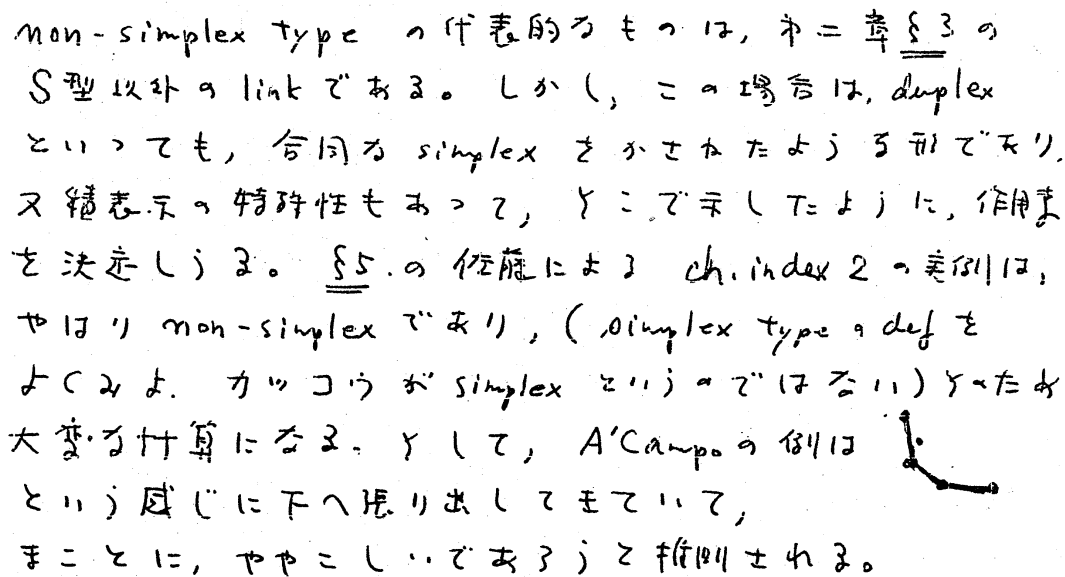 non-simplex type の代表的なものは, 第二章§3の
S型以外の link である。しかし, この場合は, duplex
といっても, 合同な simplex をかさねたような形であり,
又績表示の特殊性もあって, そこで示したように, 作用素
を決定しうる。§5.の佐藤による ch. index 2 の実例は,
やはり non-simplex であり, (simplex type の def を
よくみよ. カッコウが simplex というのではない) そのため
大変な計算になる. そして, A'Campo の例は
という感じに下へ張り出してきていて,
まことに, ややこしいであろうと推測される。